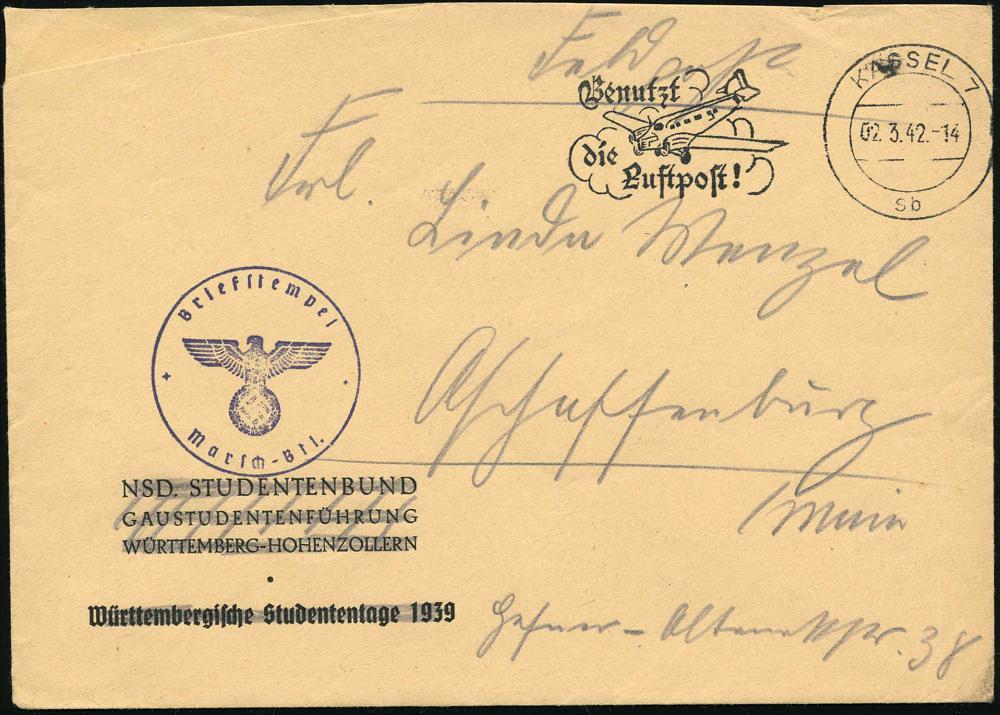 Feldpost
Benutzt
die
Luftpost!
KASSEL 7
02.3.42.-14
sb
Frl.
Linda Wenzel
Aschaffenburg
Main
Briefstempel
Marsch-Btl.
NSD. STUDENTENBUND
GAUSTUDENTENFÜHRUNG
WÜRTTEMBERG-HOHENZOLLERN
Württembergische Studententage 1939
38